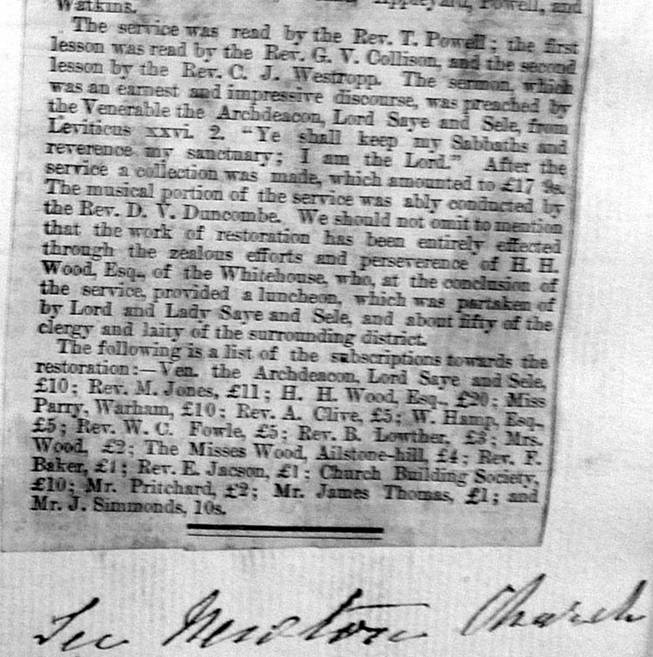 Appleyard, Powell, and
Watkins.
The service was read by the Rev. T. Powell; the first
lesson was read by the Rev. G. V. Collison, and the second
lesson by the Rev. C. J. Westropp. The sermon, which
was an earnest and impressive discourse, was preached by
the Venerable the Archdeacon, Lord Saye and Sele, from
Leviticus xxvi. 2. "Ye shall keep my Sabbaths and
reverence my sanctuary; I am the Lord." After the
service a collection was made, which amounted to £17 9s.
The musical portion of the service was ably conducted by
the Rev. D. V. Duncombe. We should not omit to mention
that the work of restoration has been entirely effected
through the zealous efforts and perseverence of H. H.
Wood, Esq., of the Whitehouse, who, at the conclusion of
the service, provided a luncheon, which was partaken of
by Lord and Lady Saye and Sele, and about fifty of the
clergy and laity of the surrounding district.
The following is a list of the subscriptions towards the
restoration:—Ven. the Archdeacon, Lord Saye and Sele,
£10; Rev. M. Jones, £11; H. H. Wood, Esq., £20; Miss
Parry, Warham, £10; Rev. A. Clive, £5; W. Hamp, Esq.,
£5; Rev. W. C. Fowle, £5; Rev. B. Lowther, £3; Mrs.
Wood, £2; The Misses Wood, Ailstone-hill, £4; Rev. F.
Baker, £1; Rev. E. Jacson, £1; Church Building Society,
£10; Mr. Pritchard, £2; Mr. James Thomas, £1; and
Mr. J. Simmonds, 10s.
See Newton Church